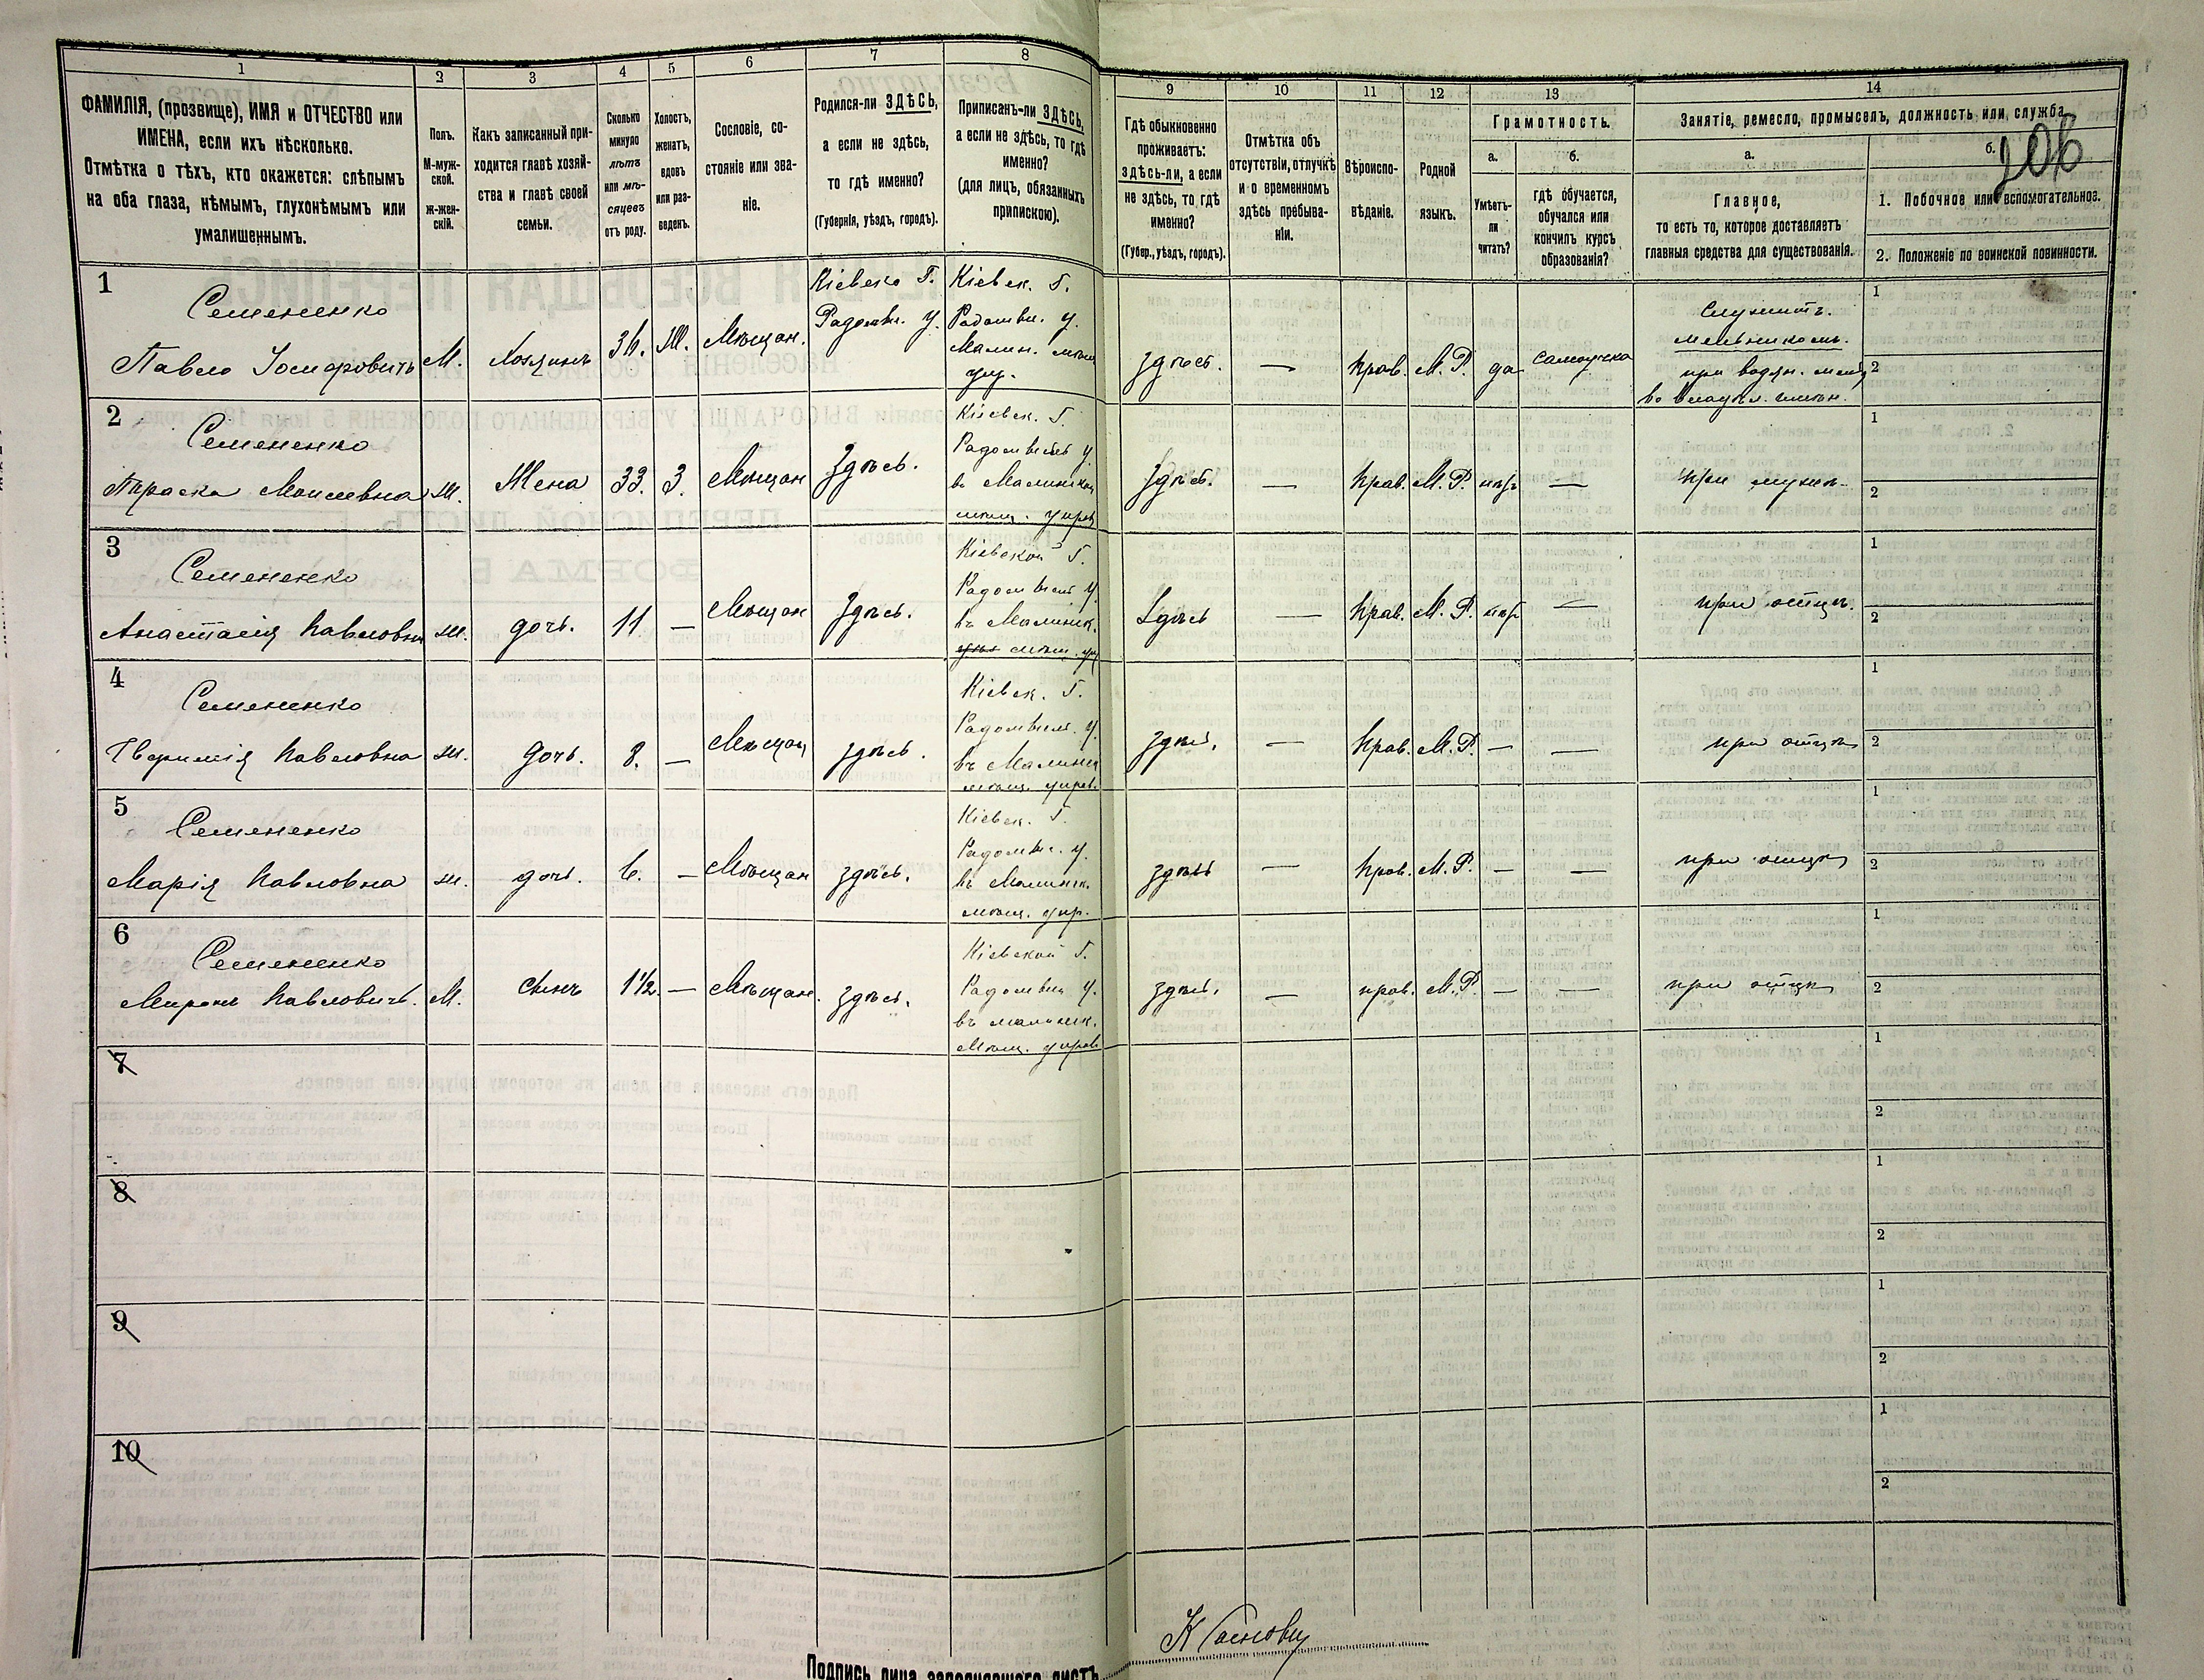 1 2 3 4 5 6 7 8 9 10 11 12 13 14
ФАМИЛІЯ, (прозвище), ИМЯ и ОТЧЕСТВО или
ИМЕНА, если ихъ нѣсколько.
Отмѣтка о тѣхъ, кто окажется: слѣпымъ
на оба глаза, нѣмымъ, глухонѣмымъ или
умалишеннымъ.
Полъ.
М-муж-
ской.
Ж-жен-
скій.
Какъ записанный при-
ходится главѣ хозяй-
ства и главѣ своей
семьи.
Сколько
минуло
лѣтъ
или мѣ-
сяцевъ
отъ роду.
Холостъ,
женатъ,
вдовъ
или раз-
веденъ.
Сословіе, со-
стояніе или зва-
ніе.
Родился-ли ЗДѢСЬ,
а если не здѣсь,
то гдѣ именно?
(Губернія, уѣздъ, городъ).
Приписанъ-ли ЗДѢСЬ,
а если не здѣсь, то гдѣ
именно?
(для лицъ, обязанныхъ
припискою).
Гдѣ обыкновенно
проживаетъ:
здѣсь-ли, а если
не здѣсь, то гдѣ
именно?
(Губер., уѣздъ, городъ).
Отмѣтка объ
отсутствіи, отлучкѣ
и о временномъ
здѣсь пребыва-
ніи.
Вѣроиспо-
вѣданіе.
Родной
языкъ.
Грамотность.
а.
Умѣетъ-
ли
читать?
б.
гдѣ обучается,
обучался или
кончилъ курсъ
образованія?
Занятіе, ремесло, промыселъ, должность или служба.
а.
Главное,
то есть то, которое доставляетъ
главныя средства для существованія.
б.
206
1. Побочное или вспомогательное.
2. Положеніе по воинской повинности.
1
Семененко
Павло
М.
Хозяинъ
36.
Ж.
Мѣщан.
Кіевско Г.
Радомы. У.
Кіевск. Г.
Радомы. У.
Малин. мѣщ
упр.
здѣсь.
—
прав.
М. Р.
да
самоучка
Служитъ
мельникомъ
при водян. мельн
1
2
2
Семененко
Параска Моисеевна
Ж.
Жена
33.
З.
Мѣщан
Здѣсь.
Кіевск. Г.
Радомысл У.
въ Малинской
мѣщ. управ
Здѣсь.
—
Прав.
М. Р.
нѣтъ
—
при мужѣ
1
2
3
Семененко
Анастасія Павловна
Ж.
дочь.
11
—
Мѣщан
Здѣсь.
Кіевской Г.
Радомысл У.
въ Малинск.
мѣщ. упр
Здѣсь
—
Прав.
М. Р.
нѣтъ
—
при отцѣ.
1
2
4
Семененко
Павловна
Ж.
дочь.
8.
—
Мѣщан
здѣсь.
Кіевск. Г.
Радомысл. У.
въ Малинск
мѣщ. управ.
здѣсь.
—
Прав.
М. Р.
—
—
при отцѣ
1
2
5
Семененко
Марія Павловна
Ж.
дочь.
6.
—
Мѣщан
здѣсь.
Кіевск. Г.
Радомы. У.
въ Малинск.
мѣщ. упр.
здѣсь
—
Прав.
М. Р.
—
—
при отцѣ
1
2
6
Семененко
Миронъ Павловичъ.
М.
Сынъ
1 1/2.
—
Мѣщан.
здѣсь.
Кіевской Г.
Радомысл У.
въ малинск.
Мѣщ. управ
здѣсь.
—
прав.
М. Р.
—
—
при отцѣ
1
2
7
1
2
8
1
2
9
1
2
10
1
2
Подпись лица заполнявшаго листъ